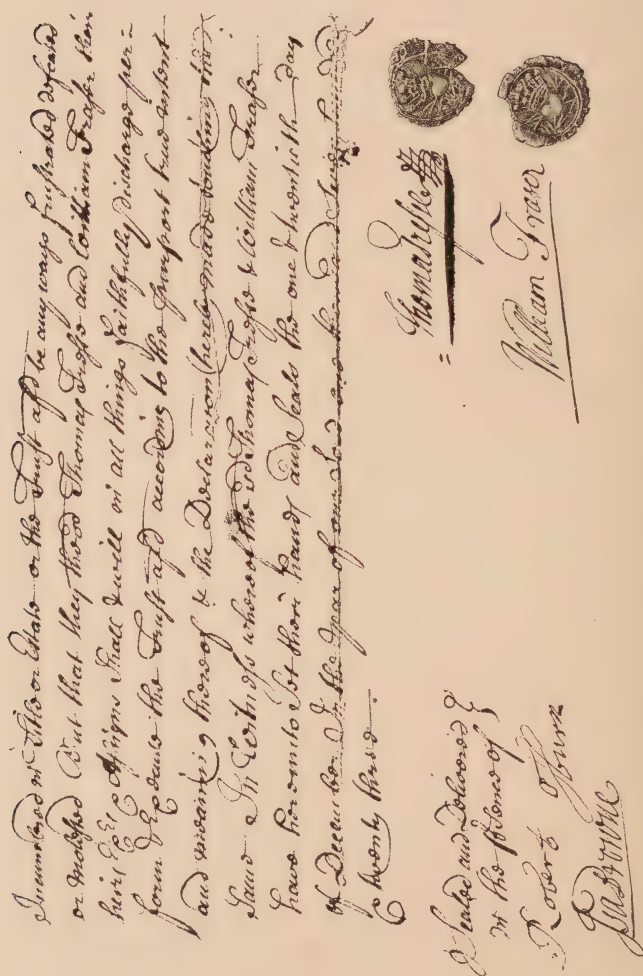 Incumbered in Title or Estate or the Trust afsd be any ways frustrated defeated
or molested But that they the sd Thomas Fresse and William Fraser their
heirs Exrs & Assigns Shall & will in all things faithfully discharge per=
form & Execute the Trust afsd according to the purport true intent
and meaning thereof & the Declaration hereby made touching the
Same In Witness whereof the sd Thomas & William Fraser
have hereunto Set their hands and Seals the one & twentieth day
of December In the Year of our Lord one thousand Seven hundred
& twenty three.
Thomas
William Fraser
Sealed and Delivered
in the presence of
Robert
Browne